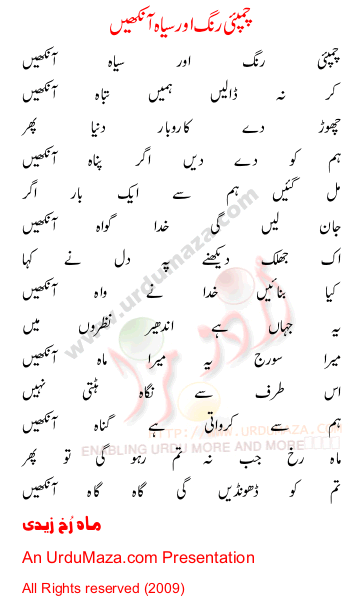 چمپئی رنگ اور سیاہ آنکھیں
چمپئی رنگ اور سیاہ آنکھیں
کر نہ ڈالیں ہمیں تباہ آنکھیں
چھوڑ دے کاروبار دنیا پھر
ہم کو دے دیں اگر پناہ آنکھیں
مل گئیں ہم سے ایک بار اگر
جان لیں گی خدا گواہ آنکھیں
اک جھلک دیکھنے پہ دل نے کہا
کیا بنائیں خدا نے واہ آنکھیں
یہ جہاں ہے اندھیر نظروں میں
میرا سورج یہ میرا ماہ آنکھیں
اس طرف سے نگاہ ہٹتی نہیں
ہم سے کرواتی ہے گناہ آنکھیں
ماہ رخ جب نہ تم رہو گی تو پھر
تم کو ڈھونڈیں گی گاہ گاہ آنکھیں
ماہ رُخ زیدی
An UrduMaza.com Presentation
All Rights reserved (2009)
www.urdumaza.com
HTTP://WWW.URDUMAZA.COM
ENABLING URDU MORE AND MORE